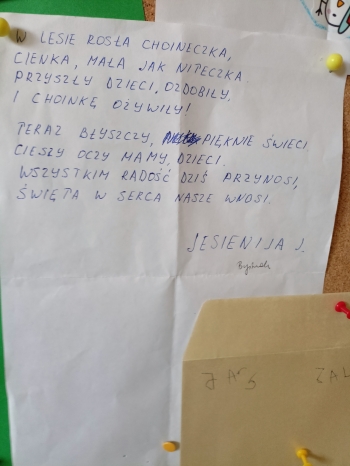 W LESIE ROSŁA CHOINECZKA,
CIENKA, MAŁA JAK NITECZKA.
PRZYSZŁY DZIECI, OZDOBIŁY,
I CHOINKĘ OŻYWIŁY!
TERAZ BŁYSZCZY, PIĘKNIE ŚWIECI
CIESZY OCZY MAMY, DZIECI.
WSZYSTKIM RADOŚĆ DZIŚ PRZYNOSI,
ŚWIĘTA W SERCA NASZE WNOSI.
JESIENIJA J.
JAŚ ZAL